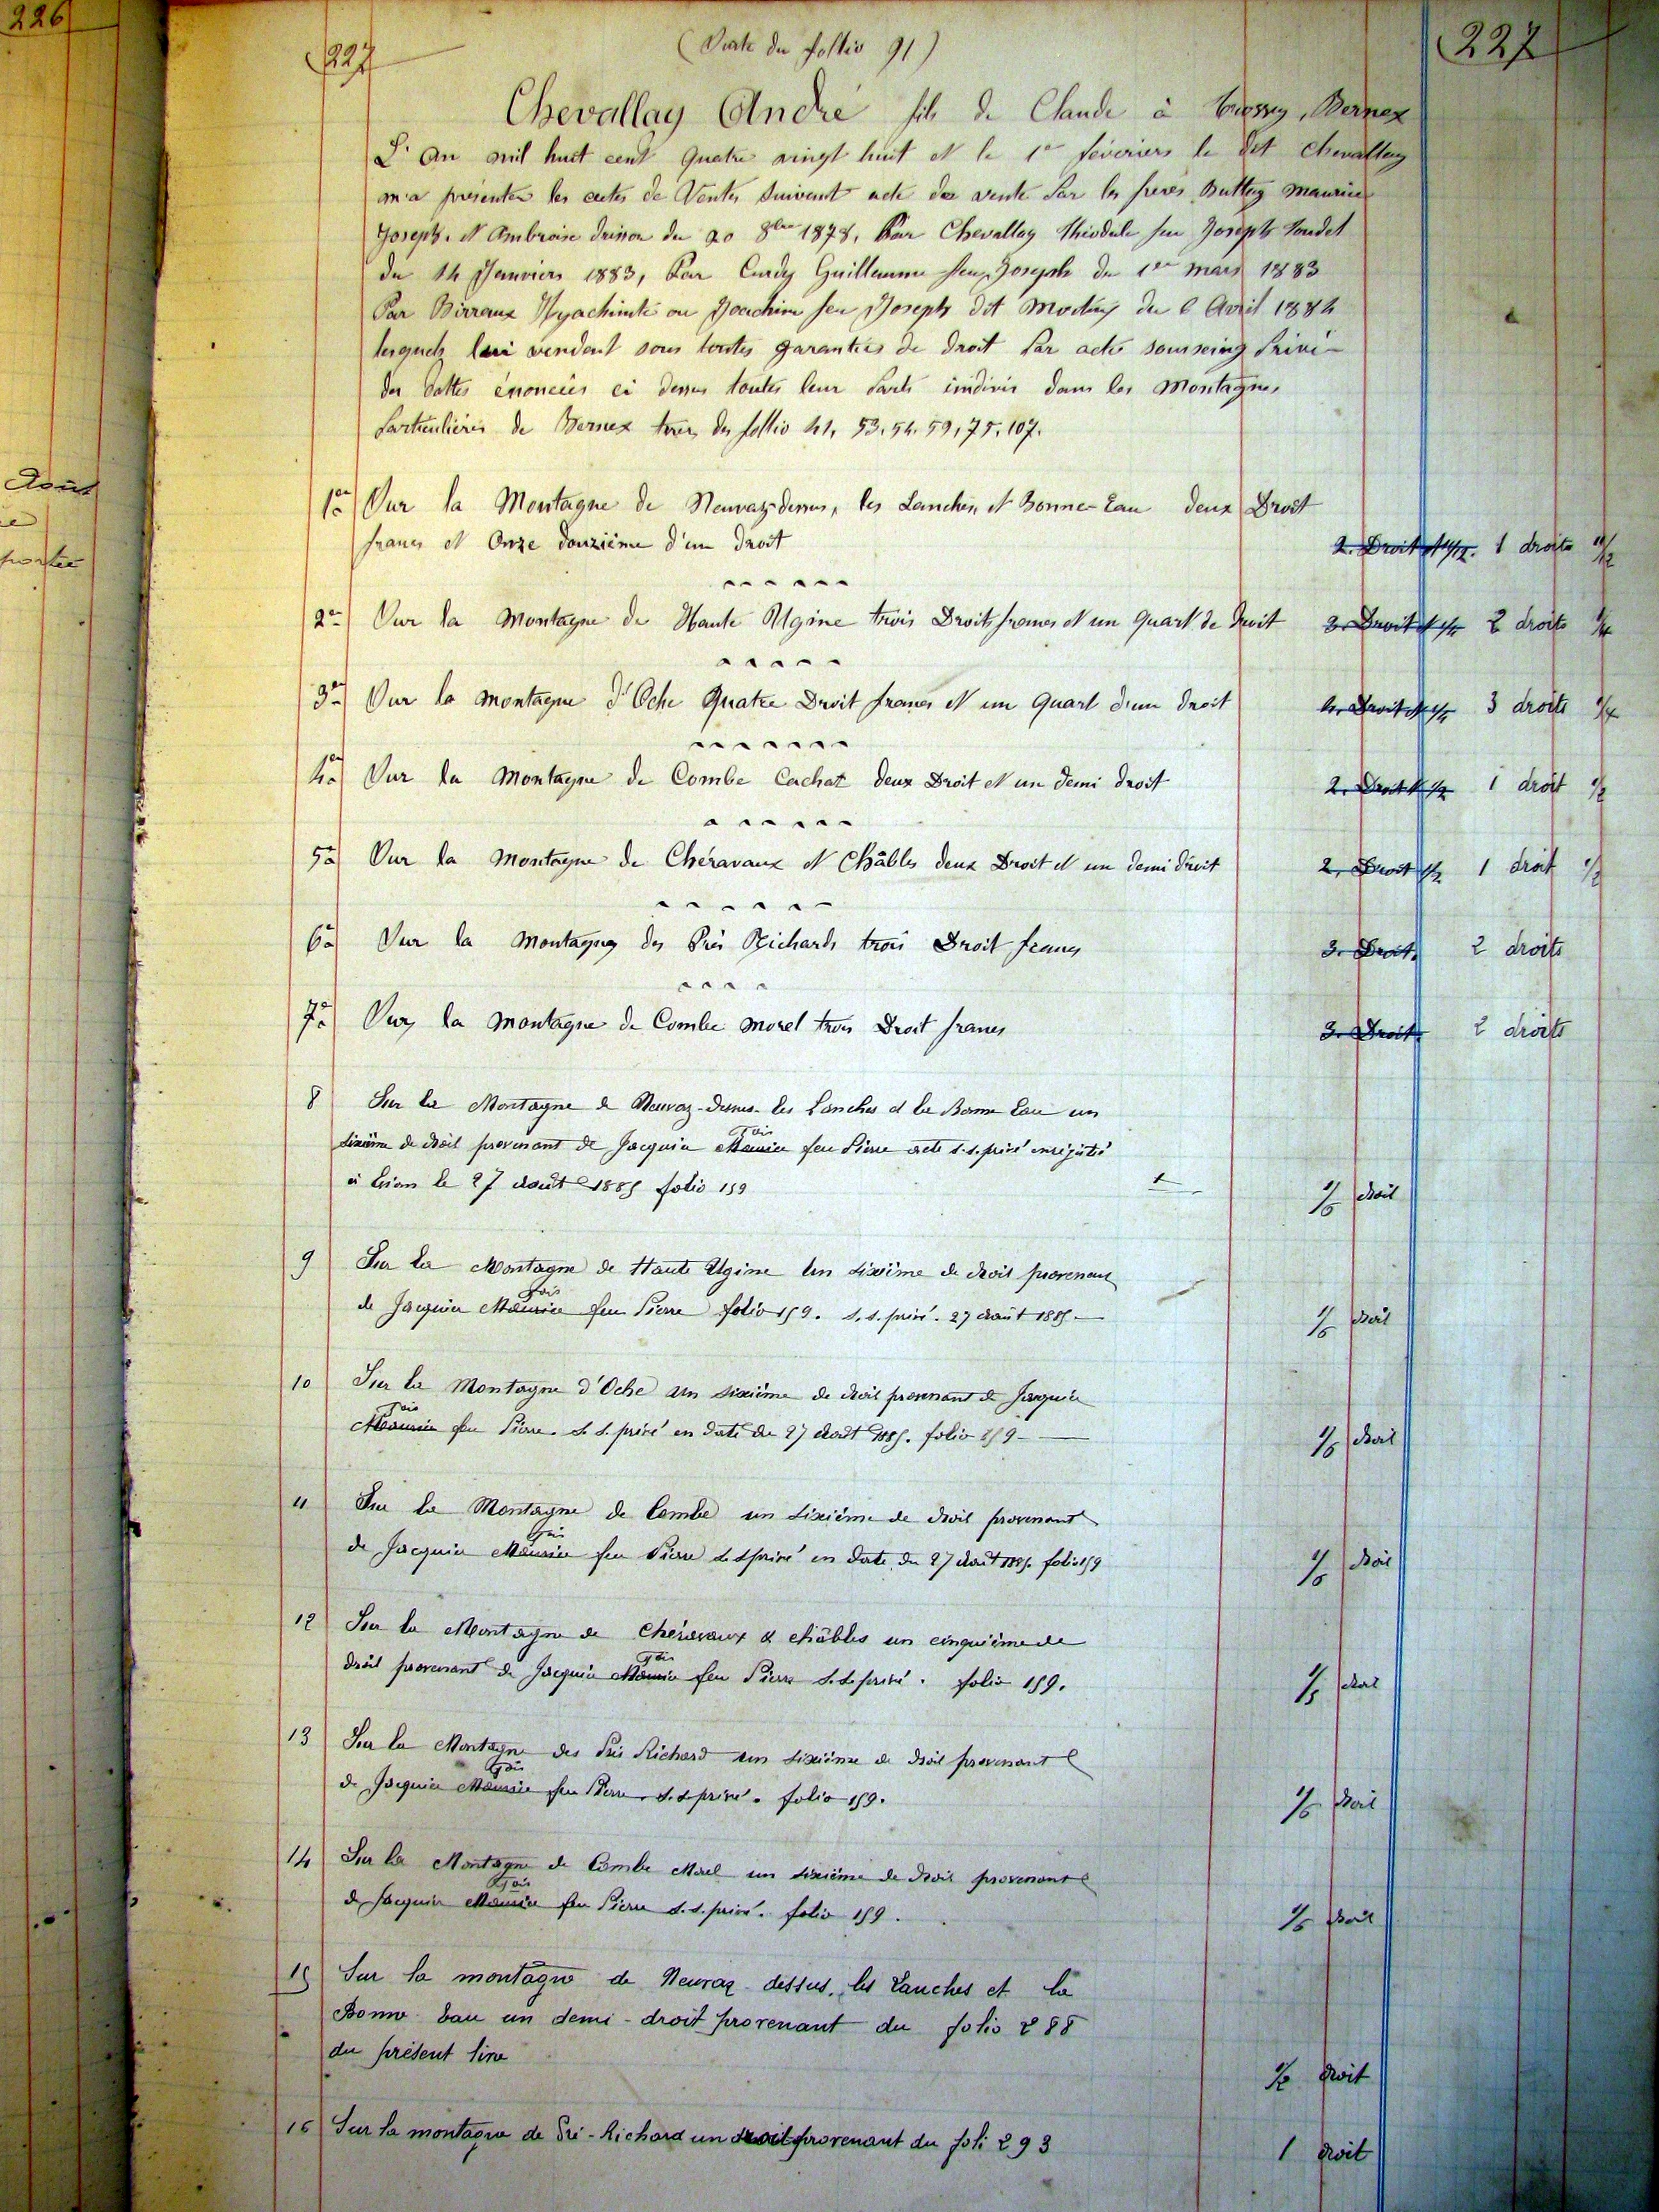 226
227
(Suite du follio 91)
227
Chevallay André fils de Claude à Trossy, Bernex
L'An mil huit cent quatre vingt huit et le 1er févriers le dit Chevallay
m'a présenter les actes de Ventes Suivant acte de vente Par les freres Buttay Maurice
Joseph. et Ambroise du 20 8bre 1878, Par Chevallay Théodule feu Joseph
du 14 Janviers 1883, Par Curdy Guillaume feu Joseph du 1er mars 1883
Par Birraux Hyachinte ou Joachim feu Joseph dit du 6 Avril 1884
lesquels lui vendent sous toutes garanties de droit Par acte sousseing Privé
des dattes énonciés ci dessus toutes leur Parts indivis dans les Montagnes
Particulières de Bernex des follio 41, 53. 54. 59, 75, 107.
Août
portée
1er Sur la Montagne de Neuvaz-dessus, les Lanches, et Bonne-Eau deux Droit
francs et Onze douzième d'un Droit
2. Droit et 11/12. 1 droits 11/12
2e Sur la Montagne de Haute Ugine trois Droits francs et un quart de Droit
3. Droit et 1/4 2 droits 1/4
3e Sur la montagne d'Oche Quatre Droit francs et un quart d'un droit
4. Droit et 1/4 3 droits 1/4
4e Sur la Montagne de Combe Cachat deux Droit et un demi droit
2. Droit et 1/2 1 droit 1/2
5e Sur la Montagne de Chéravaux et Châbles deux Droit et un demi droit
2. Droit 1/2 1 droit 1/2
6e Sur la Montagne des Près Richards trois Droit francs
3. Droit. 2 droits
7e Sur la montagne de Combe morel trois Droit francs
3. Droit. 2 droits
8 Sur la Montagne de Neuvaz-dessus les Lanches et la Bonne Eau un
fois
sixième de droit provenant de Jacquin Maurice feu Pierre acte s.s. privé enrégistré
à Evian le 27 août 1885 folio 159
1/6 droit
9 Sur la Montagne de Haute Ugine un sixième de droit provenant
fois
de Jacquin Maurice feu Pierre folio 159. s.s. privé. 27 août 1885
1/6 droit
10 Sur la Montagne d'Oche un sixième de droit provenant de Jacquin
fois
Maurice feu Pierre. s.s. privé en date du 27 août 1885. folio 159
1/6 droit
11 Sur la Montagne de Combe un sixième de droit provenant
fois
de Jacquin Maurice feu Pierre s.s. privé en date du 27 août 1885. folio 159
1/6 droit
12 Sur la Montagne de Chéravaux & châbles un cinquième de
fois
droit provenant de Jacquin Maurice feu Pierre s.s. privé. folio 159.
1/5 droit
13 Sur la Montagne des Prés Richard un sixième de droit provenant
fois
de Jacquin Maurice feu Pierre. s.s. privé. folio 159.
1/6 droit
14 Sur la Montagne de Combe Morel un sixième de droit provenant
fois
de Jacquin Maurice feu Pierre s.s. privé. folio 159.
1/6 droit
15 Sur la montagne de Neuvaz-dessus, les Lanches et la
Bonne-Eau un demi-droit provenant du folio 288
du présent livre
1/2 droit
16 Sur la montagne de Pré-Richard un droit provenant du foli 293
1 droit